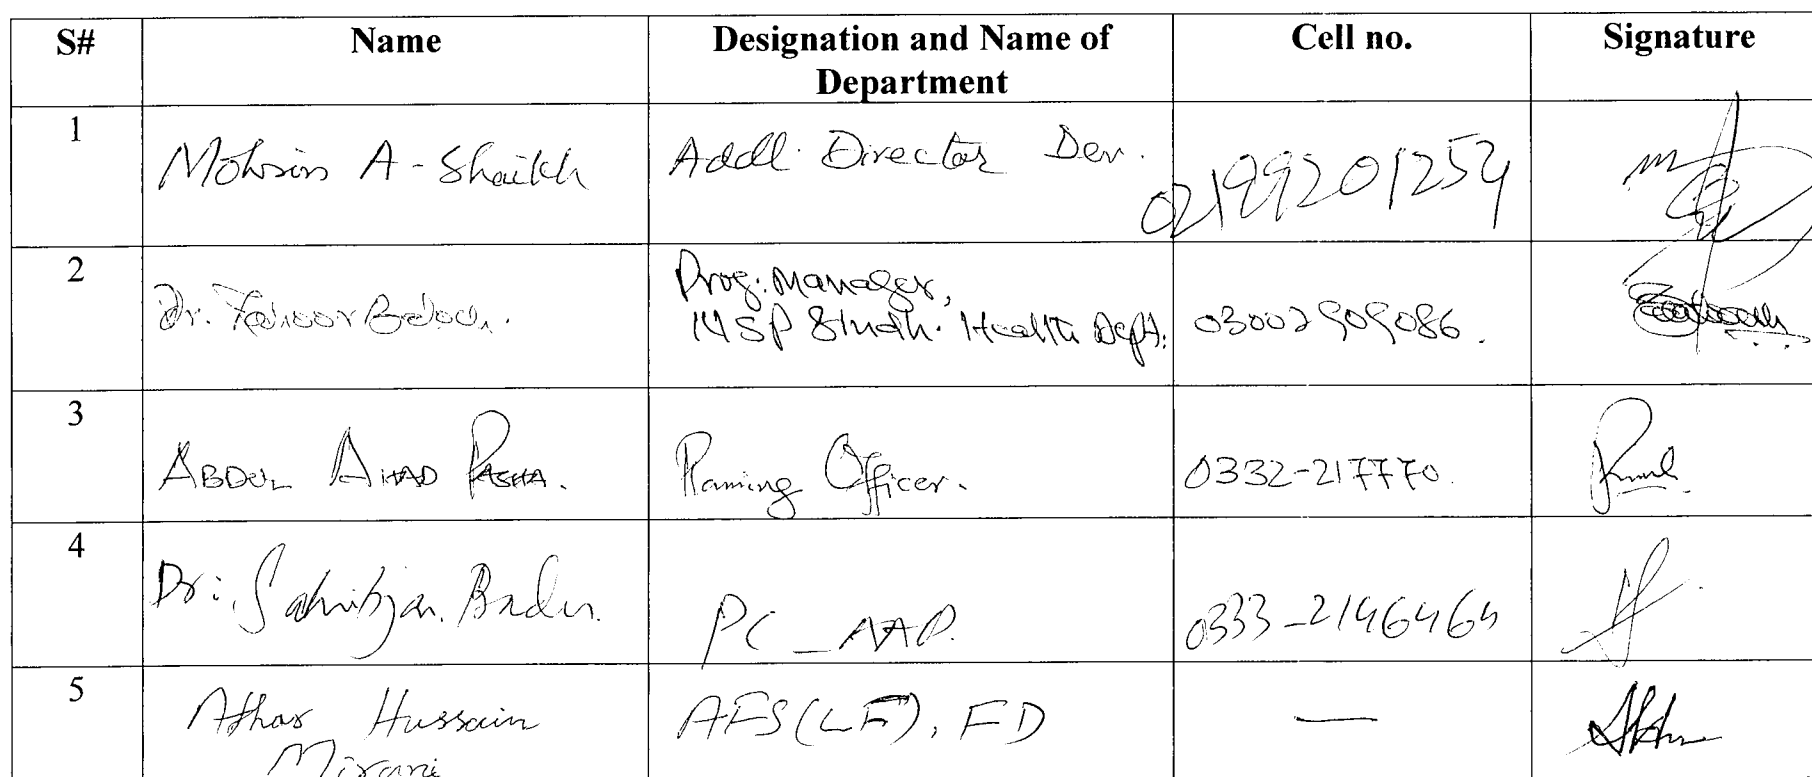 S# Name Designation and Name of Department Cell no. Signature
1 Mohsin A - Shaikh Addl. Director Dev. 02199201254
2 Dr. Baloch. Prog: Manager,
Sindh. Health Dept. 03002909086.
3 ABDUL AHAD PASHA. Planing Officer. 0332-217770.
4 Dr: Sahibjan. Badar. PC - AAP. 0333-2146464
5 Athar Hussain AFS(LF), FD —
Mirani